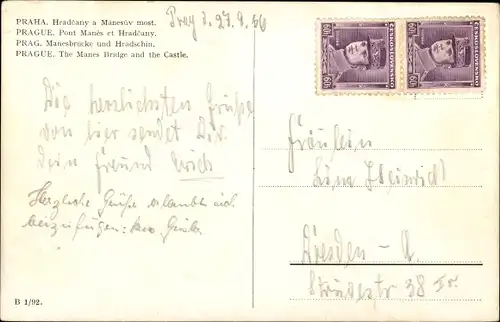 PRAHA. Hradčany a Mánesův most.
PRAGUE. Pont Manès et Hradčany.
PRAG. Manesbrücke und Hradschin.
PRAGUE. The Manes Bridge and the Castle.
Prag d. 27.9.36
Die herzlichsten Grüße
von hier sendet Dir
Dein Freund Erich
Herzliche Grüße erlaubt sich
beizufügen:
B 1/92.
60h
ČESKOSLOVENSKO
60h
ČESKOSLOVENSKO
Fräulein
Dresden - A.
38